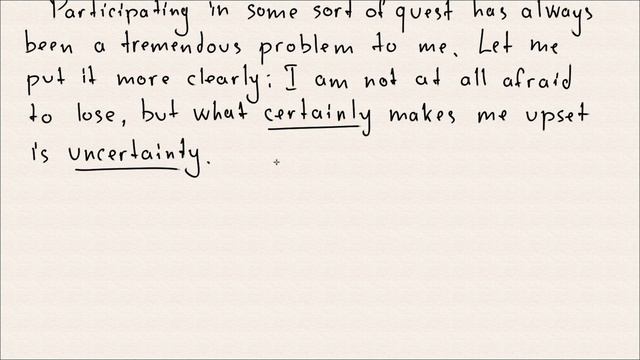 Participating in some sort of quest has always
been a tremendous problem to me. Let me
put it more clearly: I am not at all afraid
to lose, but what certainly makes me upset
is uncertainty.